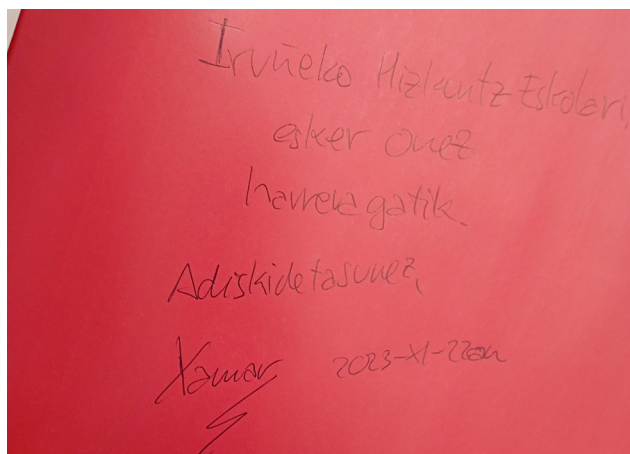 Iruñeko Hizkuntz Eskolari,
esker onez
harreragatik.
Adiskidetasunez,
Xamar 2023-XI-22an